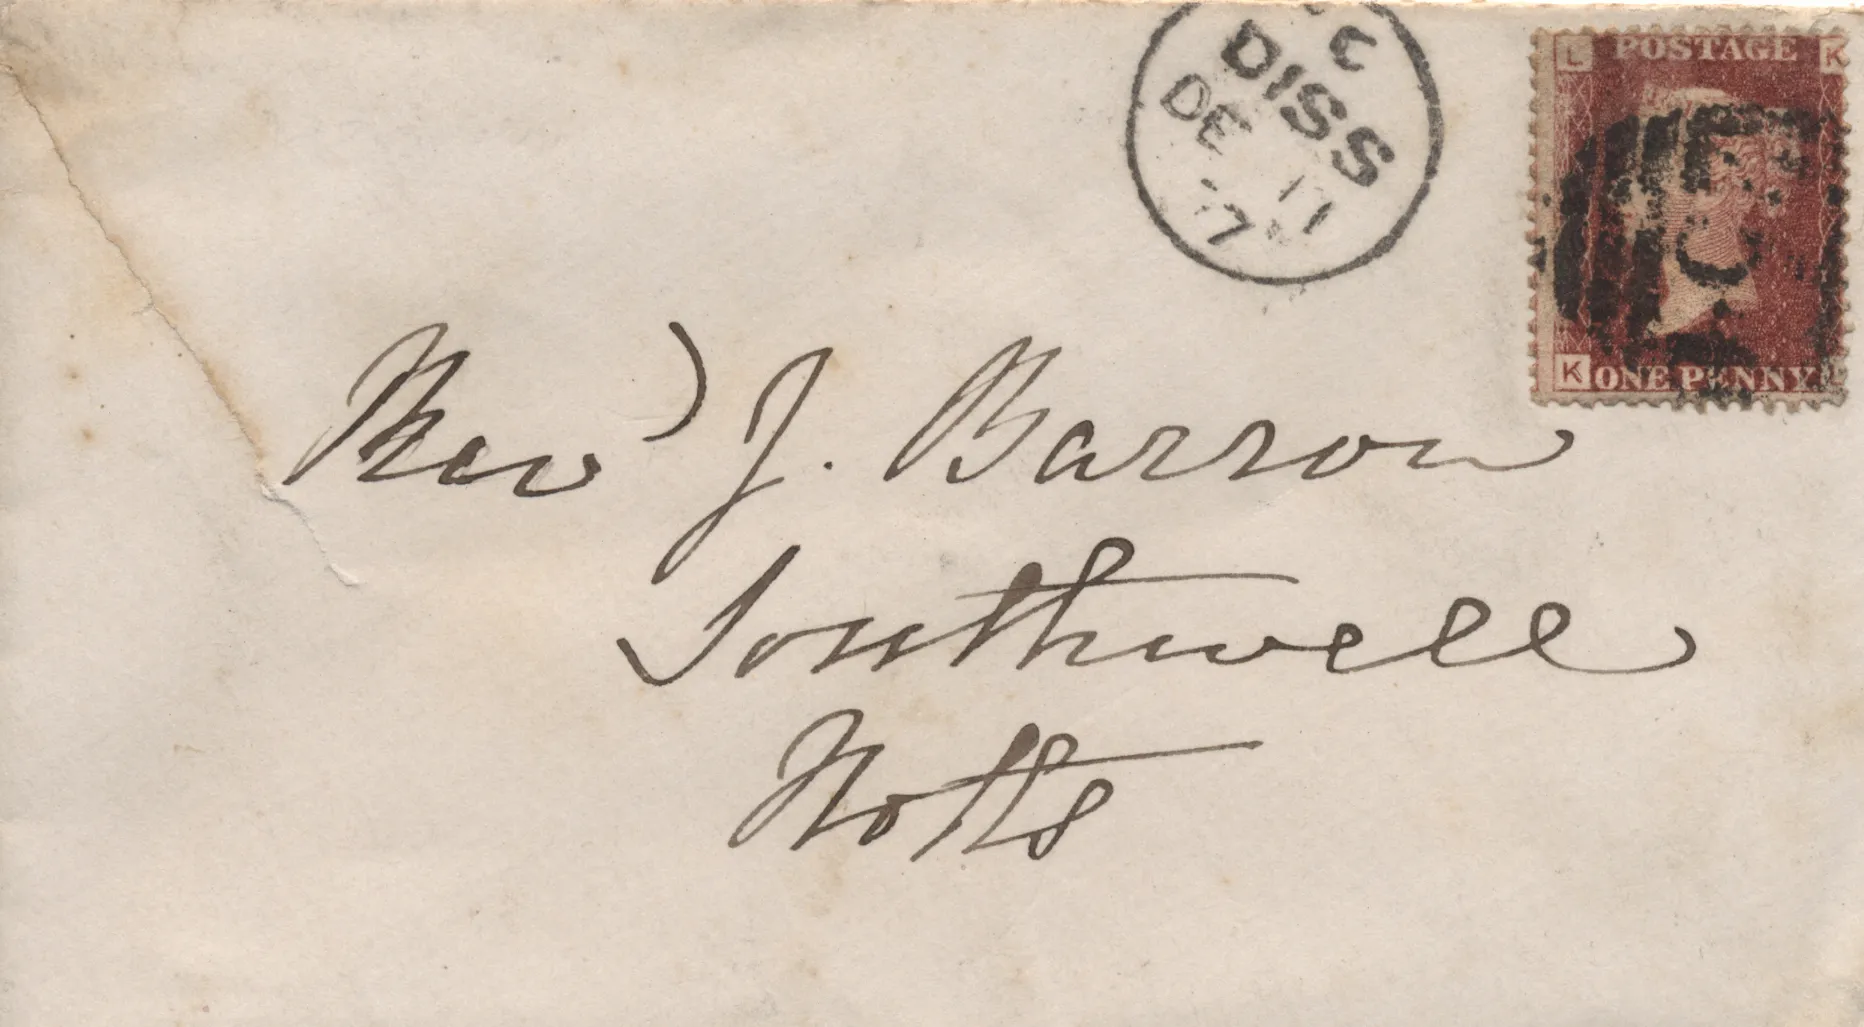 C
DISS
DE 11
L POSTAGE K
K ONE PENNY L
Revd J. Barrow
Southwell
Notts